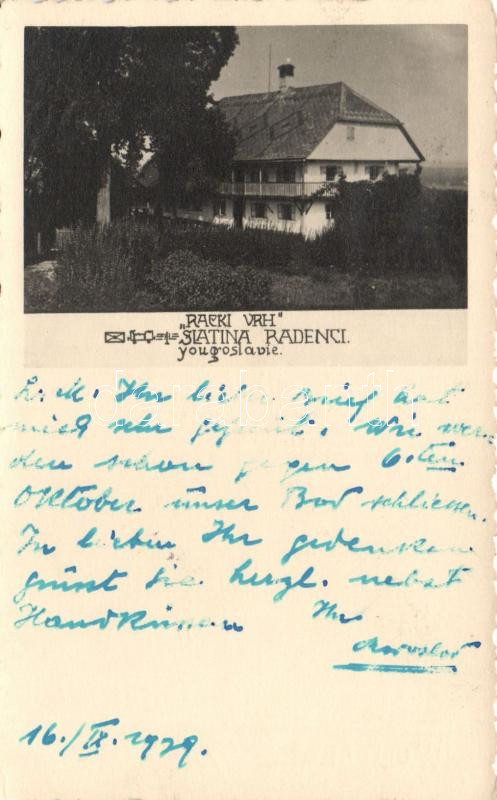 „RAČKI VRH"
SLATINA RADENCI.
yougoslavie.
L. M. Ihr lieber Brief hat
mich sehr gefreut. Wir wer-
den schon gegen 6.ten
Oktober unser Bad schliessen.
In lieben Ihr gedenken
grüsst Sie herzl. nebst
Handküssen Ihr
16./IX. 1929.